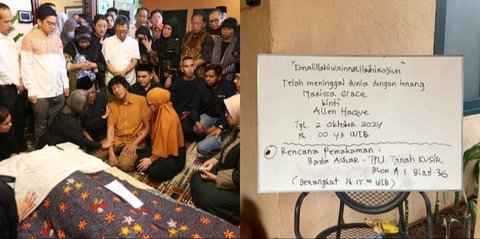 "Innalillahi wa innalillaihi rojiun"
Telah meninggal dunia dengan tenang
Marissa Grace
binti
Allen Haque
Tgl. 2 Oktober 2024
PL. 00.43 WIB
Rencana Pemakaman :
Bada Ashar - TPU. Tanah Kusir
Blok A1 Blad 36
(Berangkat Pk 15.00 WIB)